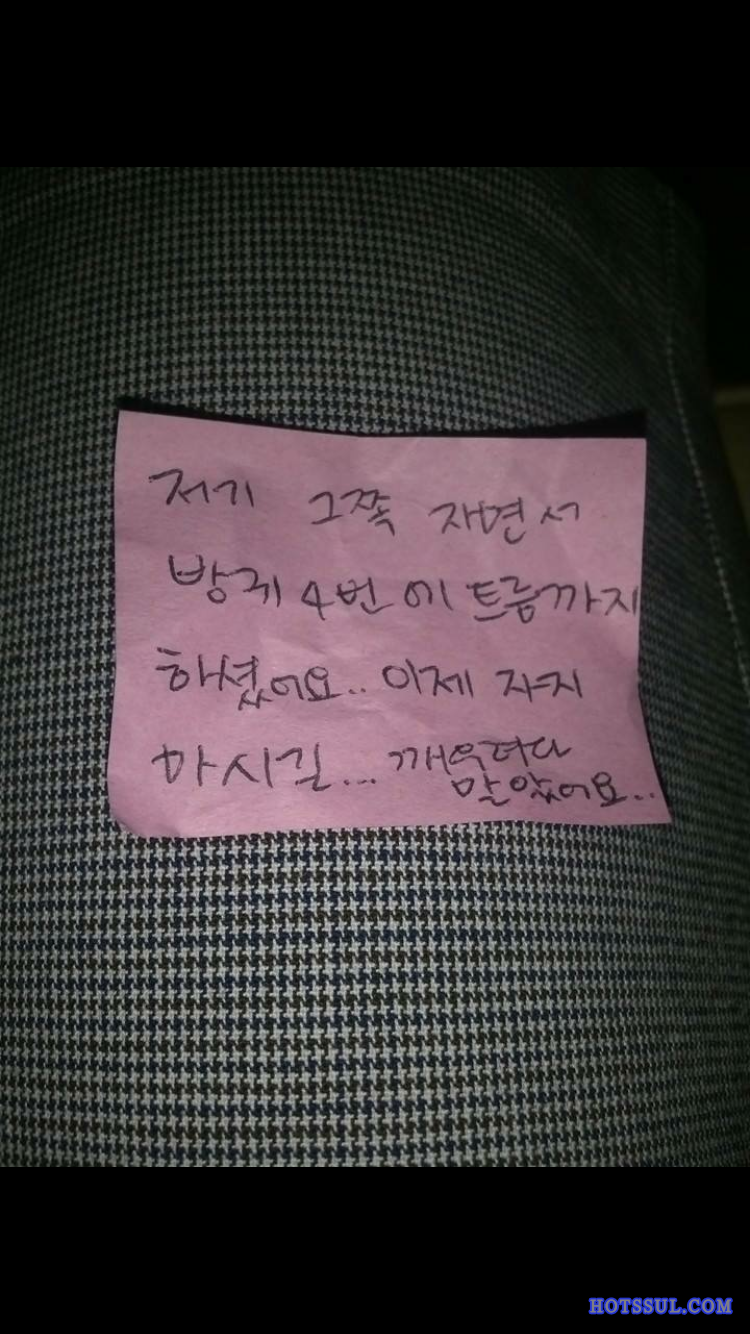 저기 그쪽 자면서
방귀 4번에 트름까지
하셨어요.. 이제 자지
마시길... 깨우려다
말았어요..
HOTSSUL.COM